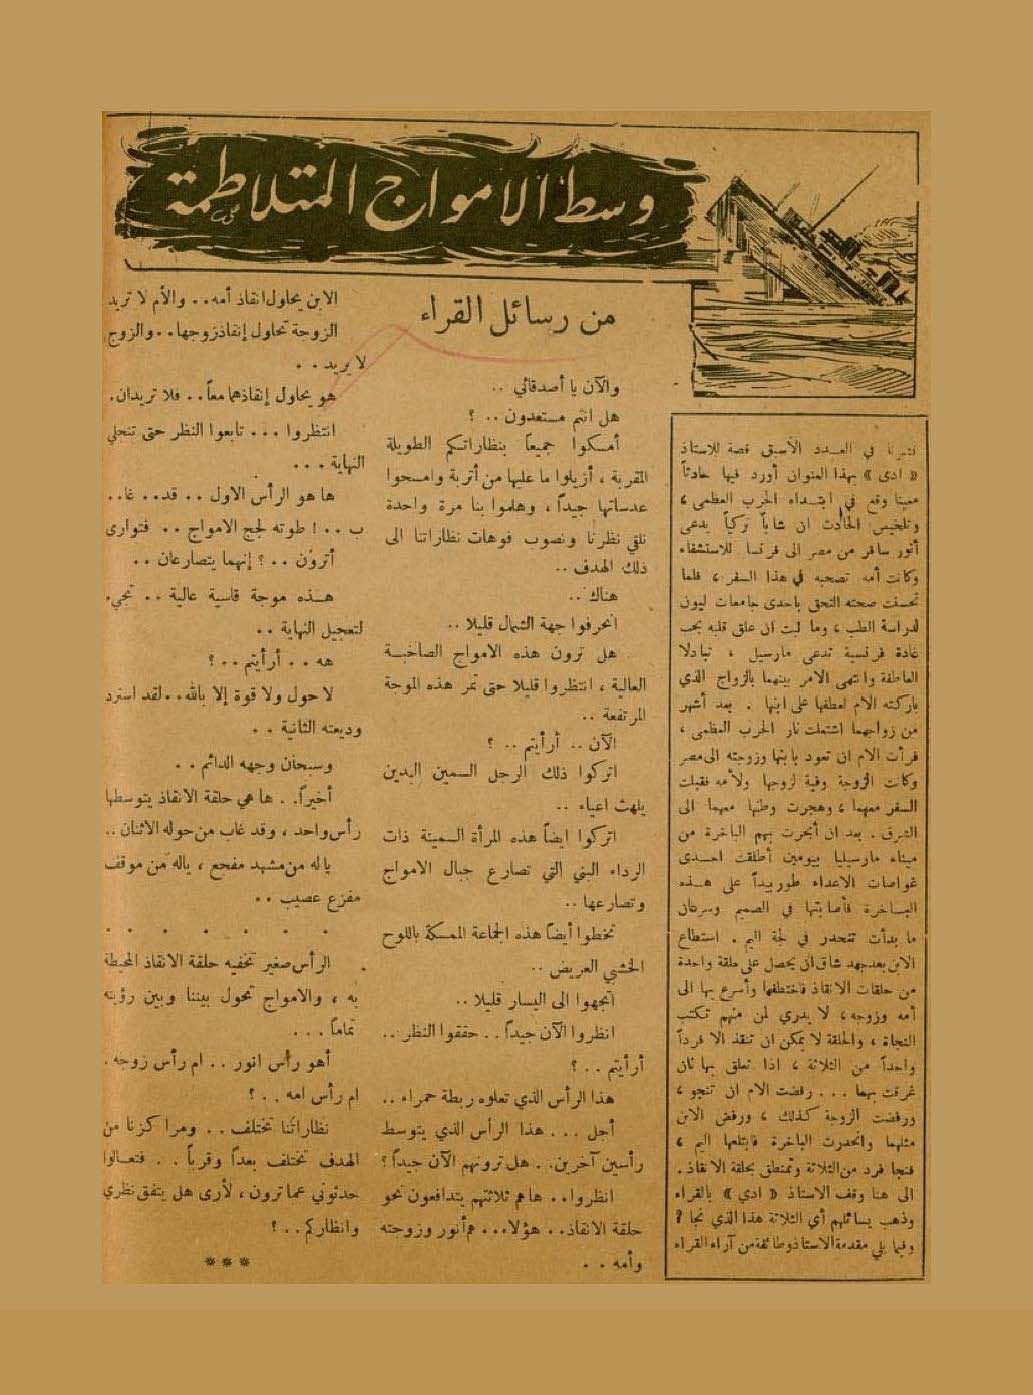 وسط الامواج المتلاطمة
نشرنا في العدد الأسبق قصة للاستاذ
« ادى » بهذا العنوان أورد فيها حادثاً
معينا وقع في ابتداء الحرب العظمى ،
وتلخيص الحادث ان شاباً تركياً يدعى
أنور سافر من مصر الى فرنسا للاستشفاء
وكانت أمه تصحبه في هذا السفر ، فلما
تحسنت صحته التحق باحدى جامعات ليون
لدراسة الطب ، وما لبث ان علق قلبه بحب
غادة فرنسية تدعى مارسيل ، تبادلا
العاطفة وانتهى الامر بينهما بالزواج الذي
باركته الام لعطفها على ابنها . بعد أشهر
من زواجهما اشتعلت نار الحرب العظمى ،
فرأت الام ان تعود بابنها وزوجته الى مصر
وكانت الزوجة وفية لزوجها ولأمه فقبلت
السفر معهما ، وهجرت وطنها معهما الى
الشرق . بعد ان أبحرت بهم الباخرة من
ميناء مارسيليا بيومين أطلقت احدى
غواصات الاعداء طوربيداً على هذه
الباخرة فأصابتها في الصميم وسرعان
ما بدأت تنحدر في لجة اليم . استطاع
الابن بعد جهد شاق ان يحصل على حلقة واحدة
من حلقات الانقاذ فاختطفها وأسرع بها الى
أمه وزوجه ، لا يدري لمن منهم تكتب
النجاة ، والحلقة لا يمكن ان تنقذ الا فرداً
واحداً من الثلاثة ، اذا تعلق بها ثان
غرقت بهما ... رفضت الام ان تنجو ،
ورفضت الزوجة كذلك ، ورفض الابن
مثلهما وانحدرت الباخرة فابتلعها اليم ،
فنجا فرد من الثلاثة وتمنطق بحلقة الانقاذ .
الى هنا وقف الاستاذ « ادي » بالقراء
وذهب يسائلهم أي الثلاثة هذا الذي نجا ؟
وفيما يلي مقدمة الاستاذ وطائفة من آراء القراء
من رسائل القراء
والآن يا أصدقائي ..
هل انتم مستعدون .. ؟
أمسكوا جميعاً بنظاراتكم الطويلة
المقربة ، أزيلوا ما عليها من أتربة وامسحوا
عدساتها جيداً ، وهلموا بنا مرة واحدة
نلقي نظرنا ونصوب فوهات نظاراتنا الى
ذلك الهدف ..
هناك ..
انحرفوا جهة الشمال قليلا ..
هل ترون هذه الامواج الصاخبة
العالية ، انتظروا قليلا حتى تمر هذه الموجة
المرتفعة ..
الآن .. أرأيتم .. ؟
اتركوا ذلك الرجل السمين البدين
يلهث اعياء ..
اتركوا ايضاً هذه المرأة السمينة ذات
الرداء البني التي تصارع جبال الامواج
وتصارعها ..
تخطوا أيضاً هذه الجماعة الممسكة باللوح
الخشبي العريض ..
اتجهوا الى اليسار قليلا ..
انظروا الآن جيداً .. حققوا النظر ..
أرأيتم .. ؟
هذا الرأس الذي تعلوه ربطة حمراء ..
أجل ... هذا الرأس الذي يتوسط
رأسين آخرين .. هل ترونهم الآن جيداً ؟
انظروا .. هاهم ثلاثتهم يتدافعون نحو
حلقة الانقاذ .. هؤلاء ... هم أنور وزوجته
وأمه ..
الابن يحاول انقاذ أمه .. والأم لا تريد
الزوجة تحاول إنقاذ زوجها .. والزوج
لا يريد ..
هو يحاول إنقاذهما معاً .. فلا تريدان .
انتظروا ... تابعوا النظر حتى تنجلي
النهاية ...
ها هو الرأس الاول .. قد .. غا ..
ب .. ! طوته لجج الامواج .. فتوارى
أترون .. ؟ إنهما يتصارعان ..
هذه موجة قاسية عالية .. تجيء
لتعجيل النهاية ..
هه .. أرأيتم .. ؟
لا حول ولا قوة إلا بالله .. لقد استرد
وديعته الثانية ..
وسبحان وجهه الدائم ..
أخيراً .. ها هي حلقة الانقاذ يتوسطها
رأس واحد ، وقد غاب من حوله الاثنان ..
ياله من مشهد مفجع ، ياله من موقف
مفزع عصيب ..
. . . . . . .
الرأس صغير تخفيه حلقة الانقاذ المحيطة
به ، والامواج تحول بيننا وبين رؤيته
تماماً ...
أهو رأس انور .. ام رأس زوجه .
ام رأس امه .. ؟
نظاراتنا تختلف .. ومراكزنا من
الهدف تختلف بعداً وقرباً .. فتعالوا
حدثوني عما ترون ، لأرى هل يتفق نظري
وانظاركم .. ؟
***